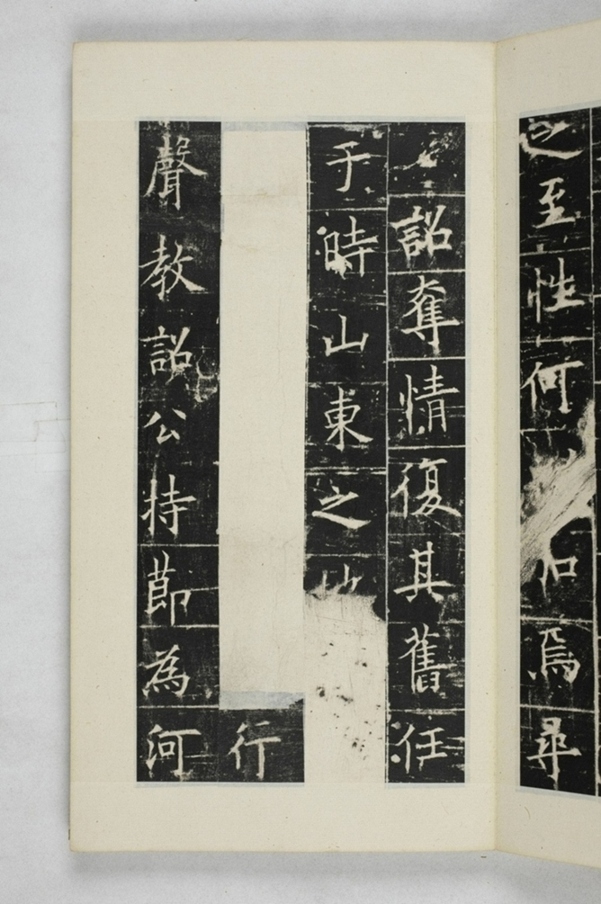 之至性何
焉尋
詔奪情復其舊任
于時山東之地
行
聲教詔公持節為河